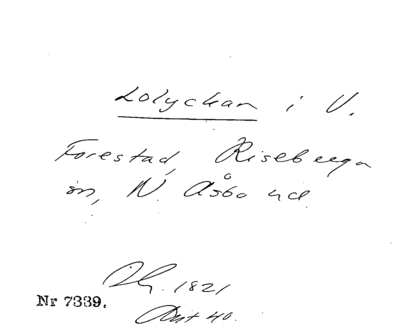 Lolyckan i V.
Forestad, Riseberga
sn, N. Åsbo hd.
1821
Nr 7339.
Akt 40.